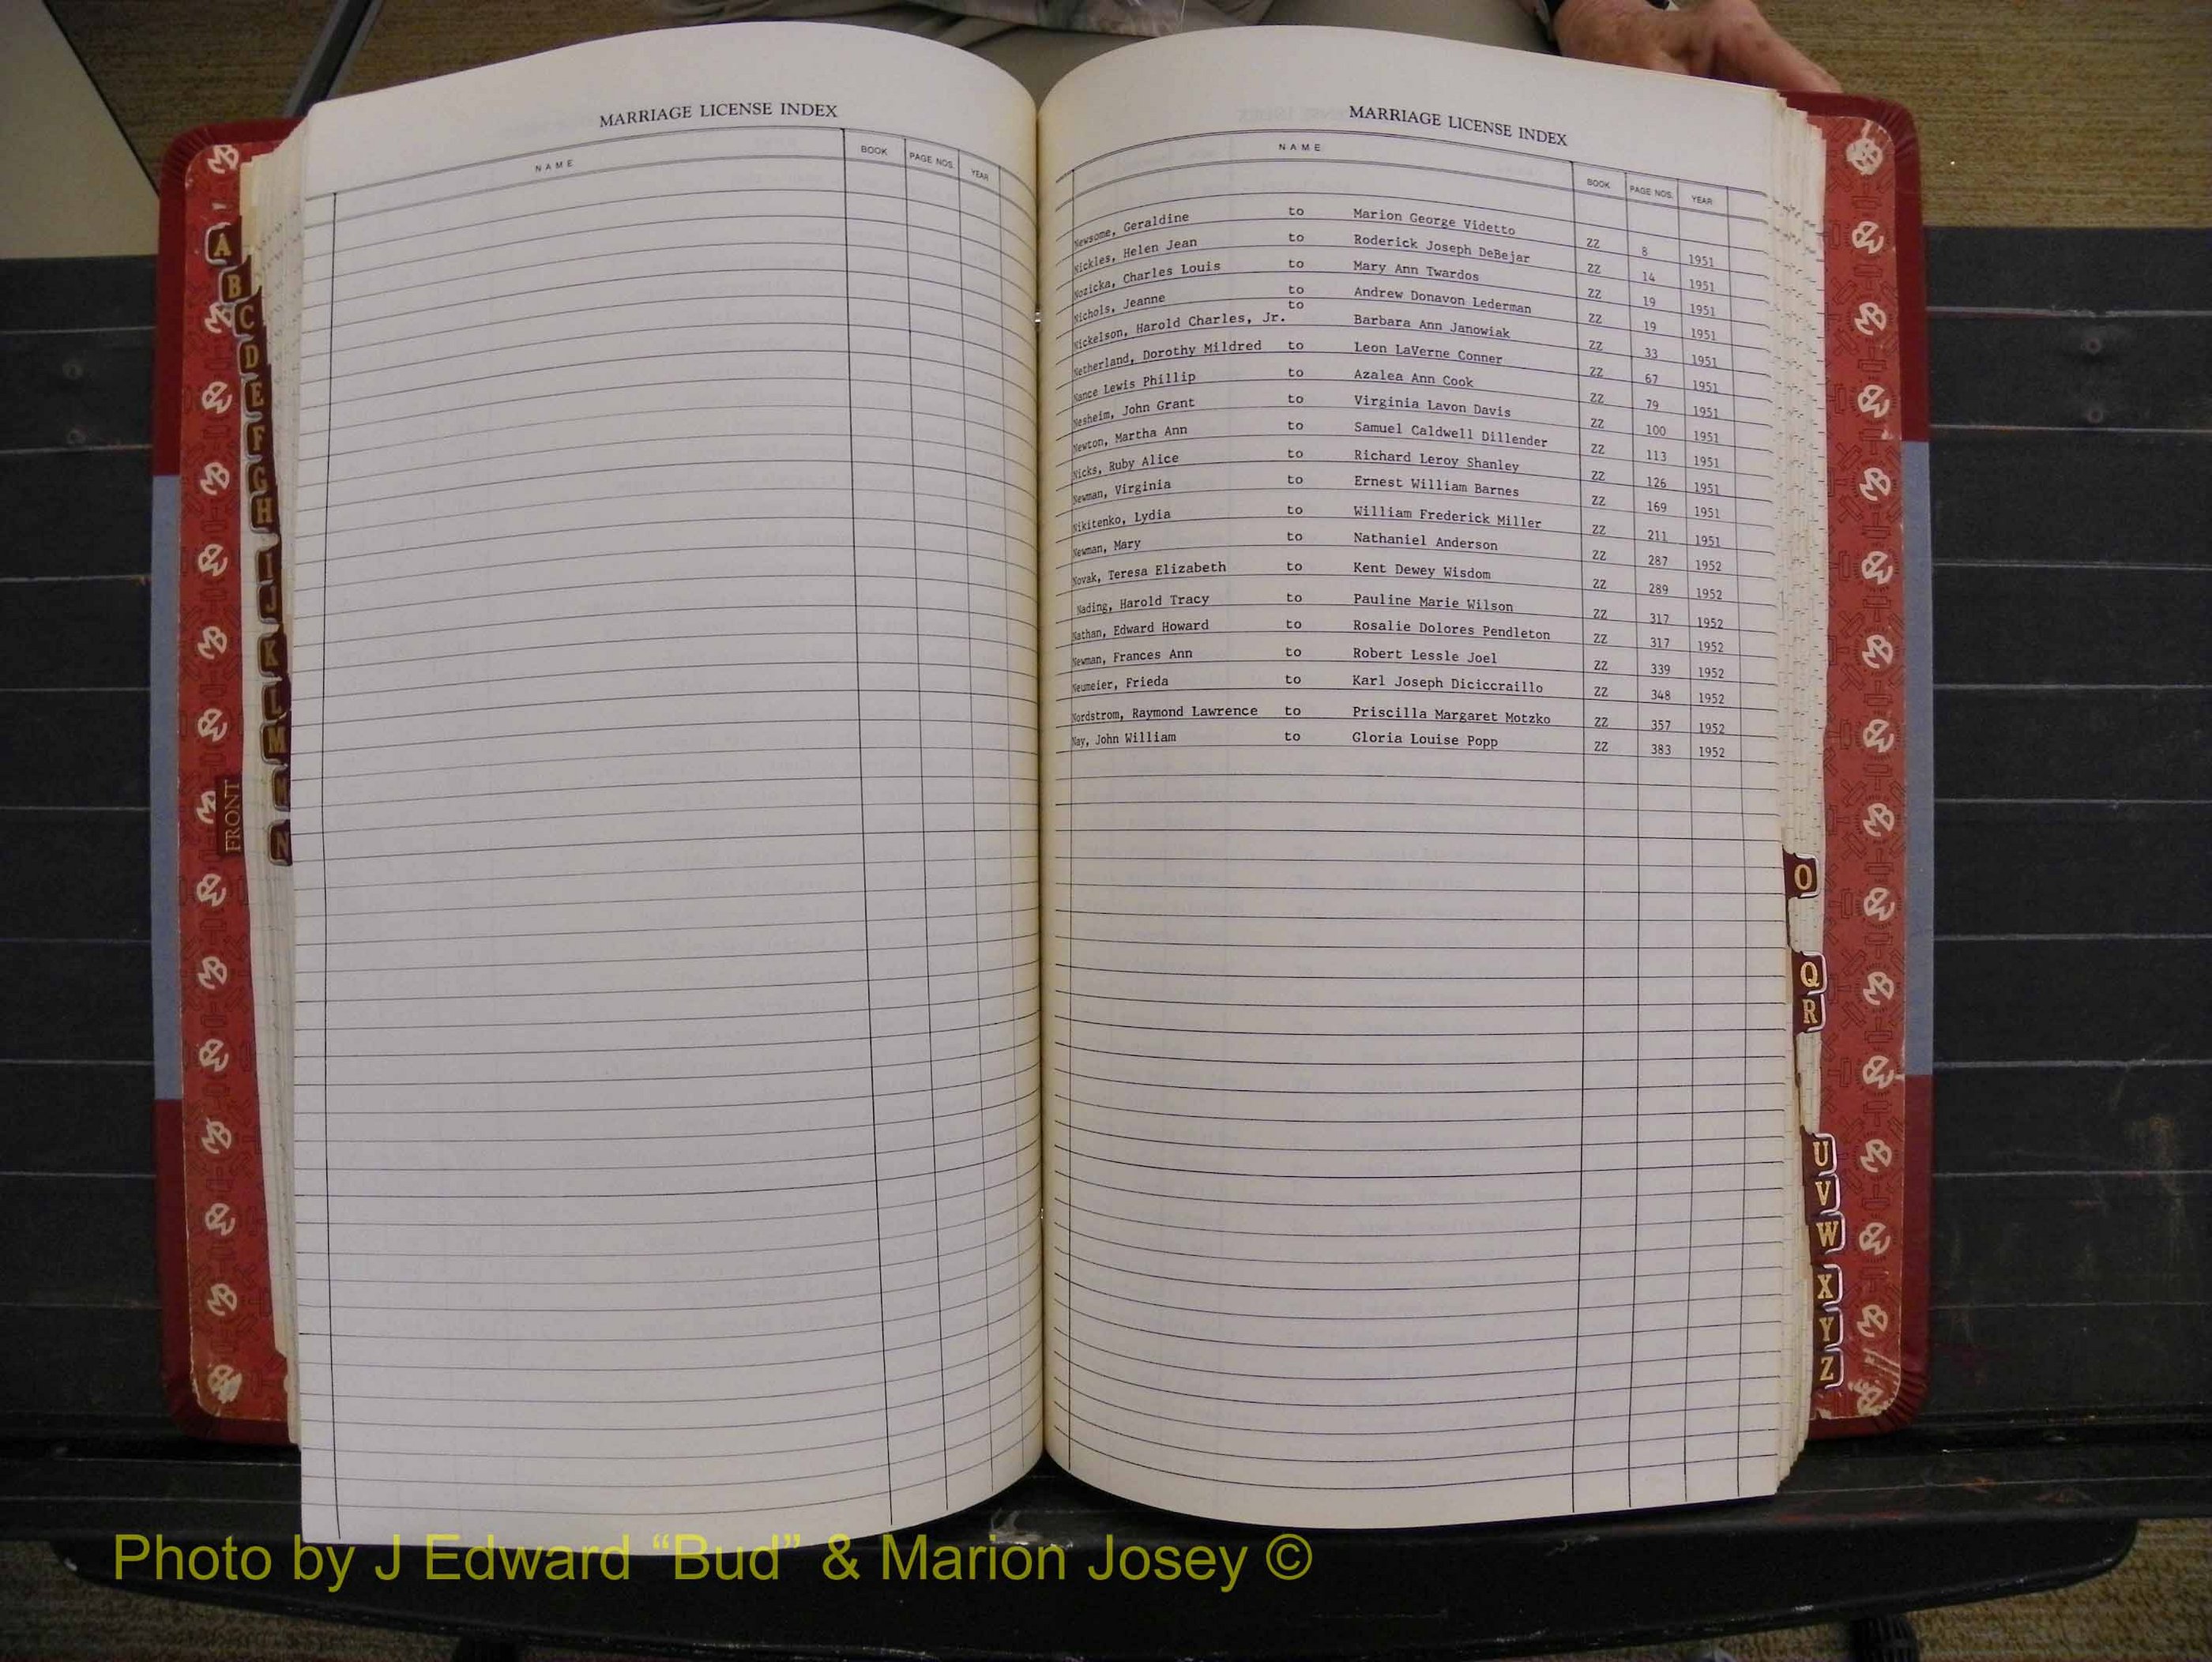 MARRIAGE LICENSE INDEX
NAME BOOK PAGE NOS. YEAR
A
B
C
D
E
F
G
H
I
J
K
L
M
N
FRONT
MARRIAGE LICENSE INDEX
NAME BOOK PAGE NOS. YEAR
Newsome, Geraldine to Marion George Videtto ZZ 8 1951
Nickles, Helen Jean to Roderick Joseph DeBejar ZZ 14 1951
Nozicka, Charles Louis to Mary Ann Twardos ZZ 19 1951
Nichols, Jeanne to Andrew Donavon Lederman ZZ 19 1951
Nickelson, Harold Charles, Jr. to Barbara Ann Janowiak ZZ 33 1951
Netherland, Dorothy Mildred to Leon LaVerne Conner ZZ 67 1951
Nance Lewis Phillip to Azalea Ann Cook ZZ 79 1951
Nesheim, John Grant to Virginia Lavon Davis ZZ 100 1951
Newton, Martha Ann to Samuel Caldwell Dillender ZZ 113 1951
Nicks, Ruby Alice to Richard Leroy Shanley ZZ 126 1951
Newman, Virginia to Ernest William Barnes ZZ 169 1951
Nikitenko, Lydia to William Frederick Miller ZZ 211 1951
Newman, Mary to Nathaniel Anderson ZZ 287 1952
Novak, Teresa Elizabeth to Kent Dewey Wisdom ZZ 289 1952
Nading, Harold Tracy to Pauline Marie Wilson ZZ 317 1952
Nathan, Edward Howard to Rosalie Dolores Pendleton ZZ 317 1952
Newman, Frances Ann to Robert Lessle Joel ZZ 339 1952
Neumeier, Frieda to Karl Joseph Diciccraillo ZZ 348 1952
Nordstrom, Raymond Lawrence to Priscilla Margaret Motzko ZZ 357 1952
Nay, John William to Gloria Louise Popp ZZ 383 1952
O
Q
R
U
V
W
X
Y
Z
Photo by J Edward “Bud” & Marion Josey ©